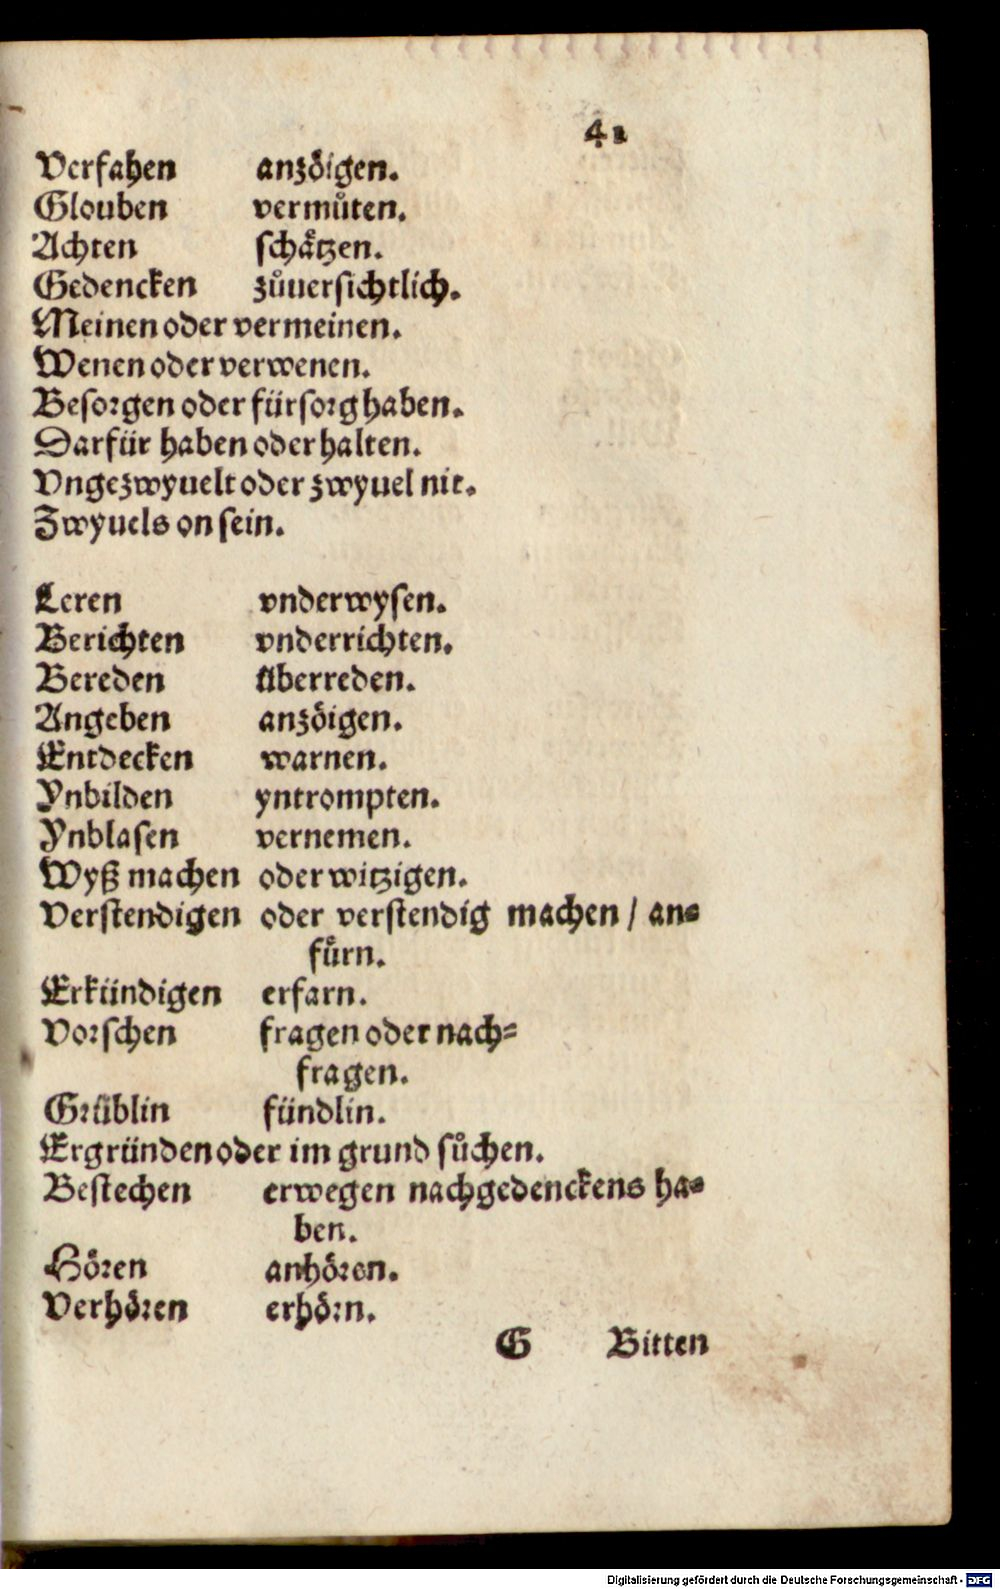 41
Verfahen anzöigen.
Glouben vermůten.
Achten schätzen.
Gedencken zůuersichtlich.
Meinen oder vermeinen.
Wenen oder verwenen.
Besorgen oder fürsorg haben.
Darfür haben oder halten.
Vngezwyuelt oder zwyuel nit.
Zwyuels on sein.
Leren vnderwysen.
Berichten vnderrichten.
Bereden überreden.
Angeben anzöigen.
Entdecken warnen.
Ynbilden yntrompten.
Ynblasen vernemen.
Wyß machen oder witzigen.
Verstendigen oder verstendig machen / an⸗
fürn.
Erkündigen erfarn.
Vorschen fragen oder nach⸗
fragen.
Grüblin fündlin.
Ergründen oder im grund sůchen.
Bestechen erwegen nachgedenckens ha⸗
ben.
Hören anhören.
Verhören erhörn.
G Bitten
Digitalisierung gefördert durch die Deutsche Forschungsgemeinschaft - DFG